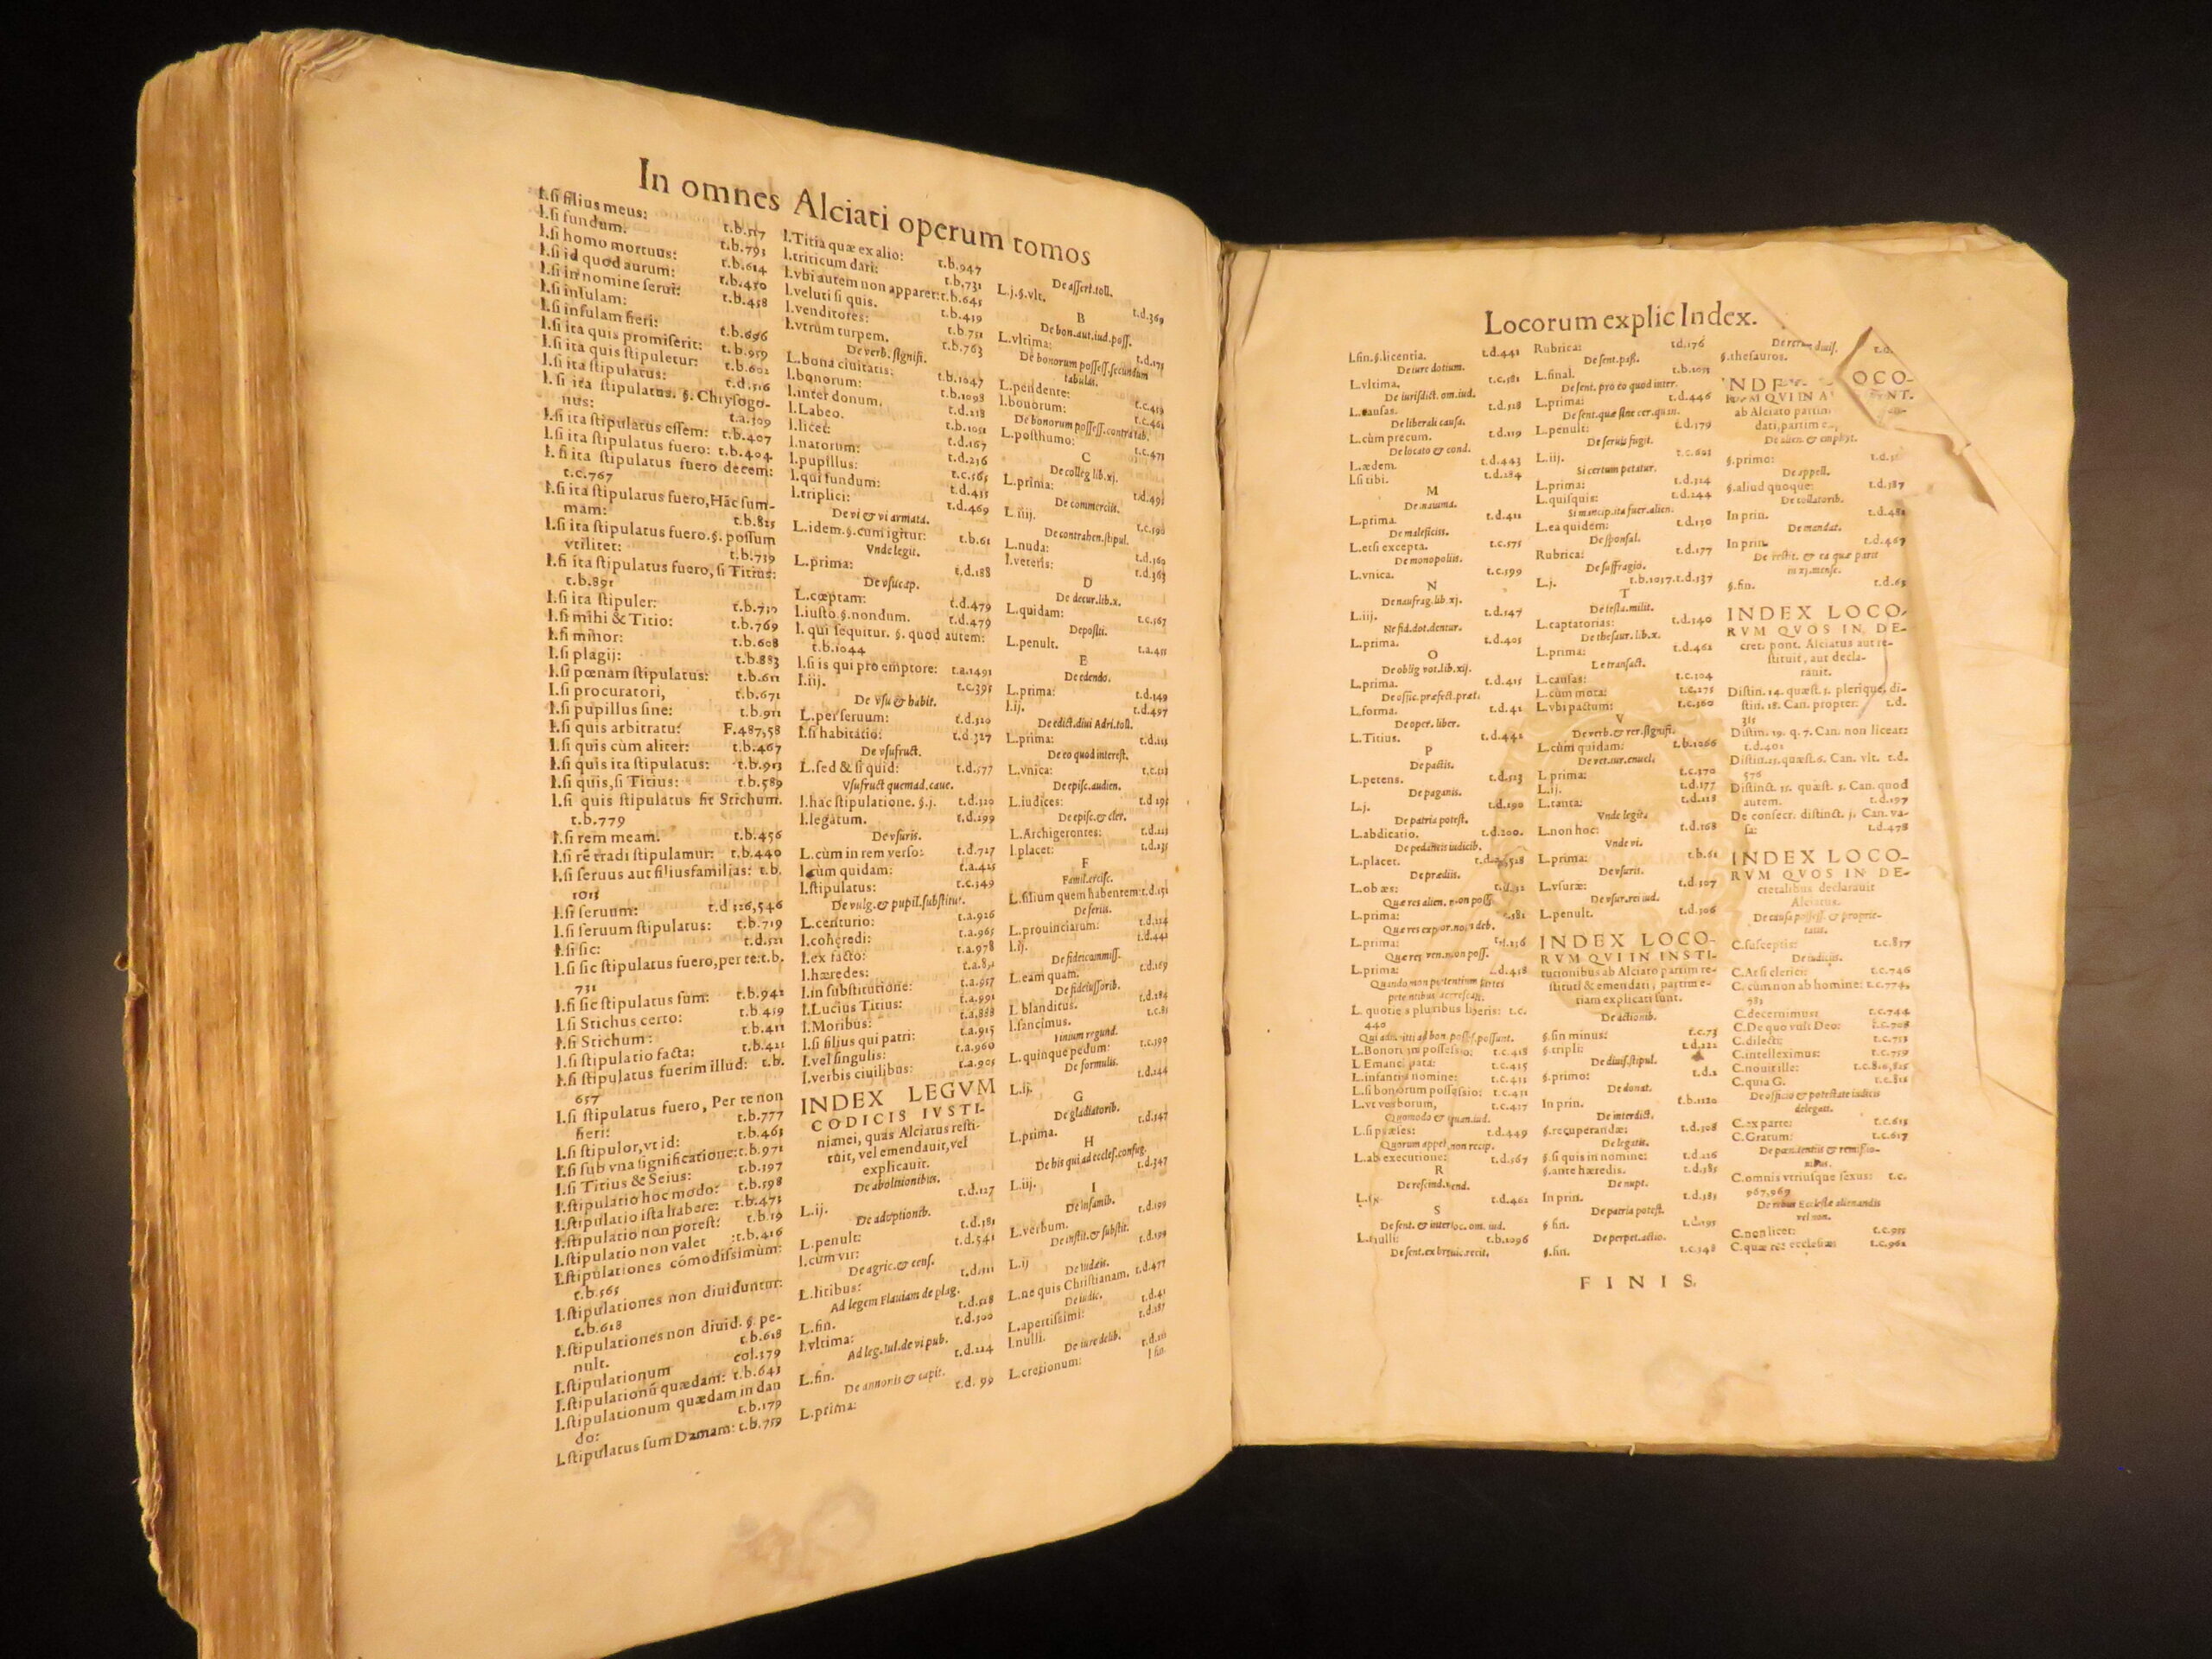 In omnes Alciati operum tomos
l.si filius meus: t.b.517
l.si fundum: t.b.791
l.si homo mortuus: t.b.614
l.si id quod aurum: t.b.450
l.si in nomine serui: t.b.458
l.si insulam:
l.si insulam fieri: t.b.696
l.si ita quis promiserit: t.b.959
l.si ita quis stipuletur: t.b.602
l.si ita stipulatus: t.d.516
l.si ita stipulatus. §. Chrysogo-
nus: t.a.309
l.si ita stipulatus essem: t.b.407
l.si ita stipulatus fuero: t.b.404
l.si ita stipulatus fuero decem:
t.c.767
l.si ita stipulatus fuero, Hāc sum-
mam: t.b.825
l.si ita stipulatus fuero.§. possum
vtiliter: t.b.739
l.si ita stipulatus fuero, si Titius:
t.b.891
l.si ita stipuler: t.b.730
l.si mihi & Titio: t.b.769
l.si minor: t.b.608
l.si plagij: t.b.883
l.si pœnam stipulatus: t.b.611
l.si procuratori, t.b.671
l.si pupillus sine: t.b.911
l.si quis arbitratu: F.487,58
l.si quis cùm aliter: t.b.467
l.si quis ita stipulatus: t.b.913
l.si quis, si Titius: t.b.589
l.si quis stipulatus sit Stichum.
t.b.779
l.si rem meam: t.b.456
l.si rē tradi stipulamur: t.b.440
l.si seruus aut filiusfamilias: t.b.
1015
l.si seruum: t.d 326,546
l.si seruum stipulatus: t.b.719
l.si sic: t.d.521
l.si sic stipulatus fuero, per te: t.b.
731
l.si sic stipulatus sum: t.b.942
l.si Stichus certo: t.b 459
l.si Stichum: t.b.411
l.si stipulatio facta: t.b.421
l.si stipulatus fuerim illud: t.b.
657
l.si stipulatus fuero, Per te non
fieri: t.b.777
l.si stipulor, vt id: t.b.463
l.si sub vna significatione: t.b.971
l.si Titius & Seius: t.b.197
l.stipulatio hoc modo: t.b.598
l.stipulatio ista habere: t.b.471
l.stipulatio non potest: t.b.19
l.stipulatio non valet :t.b.416
l.stipulationes cōmodissimùm:
t.b.565
l.stipulationes non diuiduntur:
t.b.618
l.stipulationes non diuid. §. pe-
nult. t.b.618
l.stipulationum col.179
l.stipulationū quædam: t.b.643
l.stipulationum quædam in dan
do: t.b.179
l.stipulatus sum Damam: t.b.759
l.Titia quæ ex alio: t.b.947
l.triticum dari: t.b.731
l.vbi autem non apparet: t.b.645
l.veluti si quis. t.b.419
l.venditores: t.b.751
l.vtrùm turpem. t.b.763
De verb. signifi.
L.bona ciuitatis: t.b.1047
l.bonorum: t.b.1098
l.inter donum. t.d.218
l.Labeo. t.b.1051
l.licet: t.d.167
l.natorum: t.d.236
l.pupillus: t.c.565
l.qui fundum: t.d.435
l.triplici: t.d.469
De vi & vi armata.
L.idem.§.cum igitur: t.b.61
Vnde legit.
L.prima: t.d.188
De vsucap.
L.cœptam: t.d.479
l.iusto.§.nondum. t.d.479
l. qui sequitur. §. quod autem:
t.b.1044
l.si is qui pro emptore: t.a.1491
l.iij. t.c.395
De vsu & habit.
L.per seruum: t.d.320
l.si habitatio: t.d.327
De vsufruct.
L.sed & si quid: t.d.577
Vsufruct quemad.caue.
l.hac stipulatione. §.j. t.d.320
l.legatum. t.d.299
De vsuris.
L.cùm in rem verso: t.d.727
l.cùm quidam: t.a.425
l.stipulatus: t.c.349
De vulg.& pupil.substitut.
L.centurio: t.a.926
l.coheredi: t.a.965
l.ex facto: t.a.978
l.hæredes:
l.in substitutione: t.a.917
l.Lucius Titius: t.a.991
l.Moribus: t.a.888
l.si filius qui patri: t.a.915
l.vel singulis: t.a.960
l.verbis ciuilibus: t.a.905
INDEX LEGVM
CODICIS IVSTI-
nianei, quas Alciatus resti-
tuit, vel emendauit, vel
explicauit.
De abolitionibus.
L.ij. t.d.127
De adoptionib.
L.penult: t.d.381
l.cùm vir: t.d.541
De agric.& cens.
L.litibus: t.d.511
Ad legem Flauiam de plag.
L.fin. t.d.528
l.vltima: t.d.300
Ad leg.Iul.de vi pub.
L.fin. t.d.224
De annonis & capit.
L.prima: t.d. 99
De assert.toll.
L.j.§.vlt. t.d.369
B
De bon.aut.iud.poss.
L.vltima: t.d.175
De bonorum possess.secundum
tabulas.
L.pendente: t.c.419
l.bonorum: t.c.461
De bonorum possess.contra tab.
L.posthumo: t.c.471
C
De colleg lib.xj.
L.prima: t.d.495
De commerciis.
L iiij. t.c.590
De contrahen.stipul.
L.nuda: t.d.160
l.veteris: t.d.363
D
De decur.lib.x.
L.quidam: t.c.567
Depositi.
L.penult. t.a.455
E
De edendo.
L.prima: t.d.149
l.ij. t.d.497
De edict.diui Adri.toll.
L.prima: t.d.213
De eo quod interest.
L.vnica: t.c.123
De episc.audien.
L.iudices: t.d 195
De episc.& cler.
L.Archigerontes: t.d.213
l.placet: t.d.135
F
Famil.ercisc.
L.filium quem habentem: t.d.151
De feriis.
L.prouinciarum: t.d.124
l.ij. t.d.441
De fideicommiss.
L.eam quam. t.d.169
De fideiussorib.
L blanditus. t.d.284
l.sancimus. t.c.81
Finium regund.
L.quinque pedum: t.c.190
De formulis.
L.ij. t.d.144
G
De gladiatorib.
L.prima. t.d.347
H
De his qui ad eccles.confug.
L.iij. t.d.347
I
De infamib.
L.verbum. t.d.199
De instit.& substit.
L.ij t.d.199
De iudæis.
L.ne quis Christianam. t.d.477
De iudic.
L.apertissimi: t.d.41
l.nulli. t.d.187
De iure delib.
L.cretionum: t.d.111
l fin.
Locorum explic Index.
l.fin.§.licentia. t.d.441
De iure dotium.
L.vltima. t.c.581
De iurisdict. om.iud.
L.causas. t.d.328
De liberali causa.
L.cùm precum. t.d.119
De locato & cond.
L.ædem. t.d.443
l.si tibi. t.d.284
M
De nauima.
L.prima. t.d.421
De maleficiis.
L.etsi excepta. t.c.575
De monopoliis.
L.vnica. t.c.199
N
De naufrag.lib.xj.
L.iij. t.d.147
Ne fid.dot.dentur.
L.prima. t.d.401
O
De oblig vot.lib.xij.
L.prima. t.d.415
De offic.præfect.præt.
L.forma. t.d.41
De oper. liber.
L.Titius. t.d.442
P
De pactis.
L.petens. t.d.513
De paganis.
L.j. t.d.190
De patria potest.
L.abdicatio. t.d.200.
De pedaneis iudicib.
L.placet.
De prædiis.
L.ob æs:
Quæ res alien. non poss.
L.prima:
L.prima:
L.prima:
L. quoties pluribus liberis: t.c.
440
L.Bonorum possessio: t.c.418
L Emancipata: t.c.415
L.infantis nomine: t.c.411
L.si bonorum possessio: t.c.431
L.vt verborum, t.c.427
Quomodo & quan.iud.
L.si præses: t.d.449
Quorum appel.non recip.
L.ab executione: t.d.567
R
De rescind.vend.
t.d.461
S
De sent. & interloc. om. iud.
L.nulli: t.b.1096
De sent.ex breui.recit.
Rubrica: t.d.176
De sent.pass.
L.final. t.b.1051
De sent. pro eo quod inter.
L.prima: t.d.446
De sent.quæ sine cer.quan.
L.penult: t.d.179
De seruis fugit.
L.iij. t.c.601
Si certum petatur.
L.prima: t.d.324
L.quisquis: t.d.244
Si mancip.ita fuer.alien.
L.ea quidem: t.d.130
De sponsal.
Rubrica: t.d.177
De suffragio.
L.j. t.b.1037.t.d.137
T
De testa.milit.
L.captatorias: t.d.540
De thesaur. lib.x.
L.prima: t.d.461
De transact.
L.causas: t.c.104
L.cùm mota: t.c.275
L.vbi pactum: t.c.360
V
De verb.& rer.signifi.
L.cùm quidam: t.b.1066
De vet.iur.enucl.
L prima: t.c.370
L.ij. t.d.177
L.tanta: t.d.218
Vnde legit.
L.non hoc: t.d.168
Vnde vi.
L.prima: t.b.61
De vsuris.
L.vsuræ: t.d.307
De vsur.rei iud.
L.penult. t.d.306
INDEX LOCO-
RVM QVI IN INSTI-
tutionibus ab Alciato partim re-
stituti & emendati, partim e-
tiam explicati sunt.
De actionib.
§.sin minus: t.c.73
§.tripli: t.d.222
De diuis.stipul.
§.primo: t.d.2
De donat.
In prin. t.b.1120
De interdict.
§.recuperandæ: t.d.308
De legatis.
§.si quis in nomine: t.d.226
§.ante hæredis. t.d.385
De nupt.
In prin. t.d.381
De patria potest.
§ fin. t.d.195
De perpet.actio.
§.fin. t.c.348
§.thesauros.
OCO-
ab Alciato partim
dati, partim e
De alien. & emphyt.
§.primo:
De appell.
§.aliud quoque: t.d.387
De collatorib.
In prin. t.d.481
De mandat.
In prin. t.d.467
De restit. & ea quæ parit
in xj.mense.
§.fin. t.d.65
INDEX LOCO-
RVM QVOS IN DE-
cret. pont. Alciatus aut re-
stituit, aut decla-
rauit.
Distin. 14. quæst. 5. plerique, di-
stin. 18. Can. propter: t.d.
315
Distin. 19. q. 7. Can. non liceat:
t.d.402
Distin.23.quæst.6. Can. vlt. t.d.
576
Distinct. 35. quæst. 5. Can. quod
autem. t.d.197
De consecr. distinct. j. Can. va-
sa: t.d.478
INDEX LOCO-
RVM QVOS IN DE-
cretalibus declarauit
Alciatus.
De causa possess. & proprie-
tatis.
C.susceptis: t.c.857
De iudiciis.
C.At si clerici: t.c.746
C.cùm non ab homine: t.c.774,
583
C.decernimus: t.c.744
C.De quo vult Deo: t.c.708
C.dilecti: t.c.753
C.intelleximus: t.c.759
C.nouit ille: t.c.810,825
C.quia G. t.c.812
De officio & potestate iudicis
delegati.
C.ex parte: t.c.613
C.Gratum: t.c.617
De pœnitentiis & remissio-
nibus.
C.omnis vtriusque sexus: t.c.
967,969
De rebus Ecclesiæ alienandis
vel non.
C.non licet: t.c.959
C.quæ res ecclesiæ: t.c.962
FINIS.